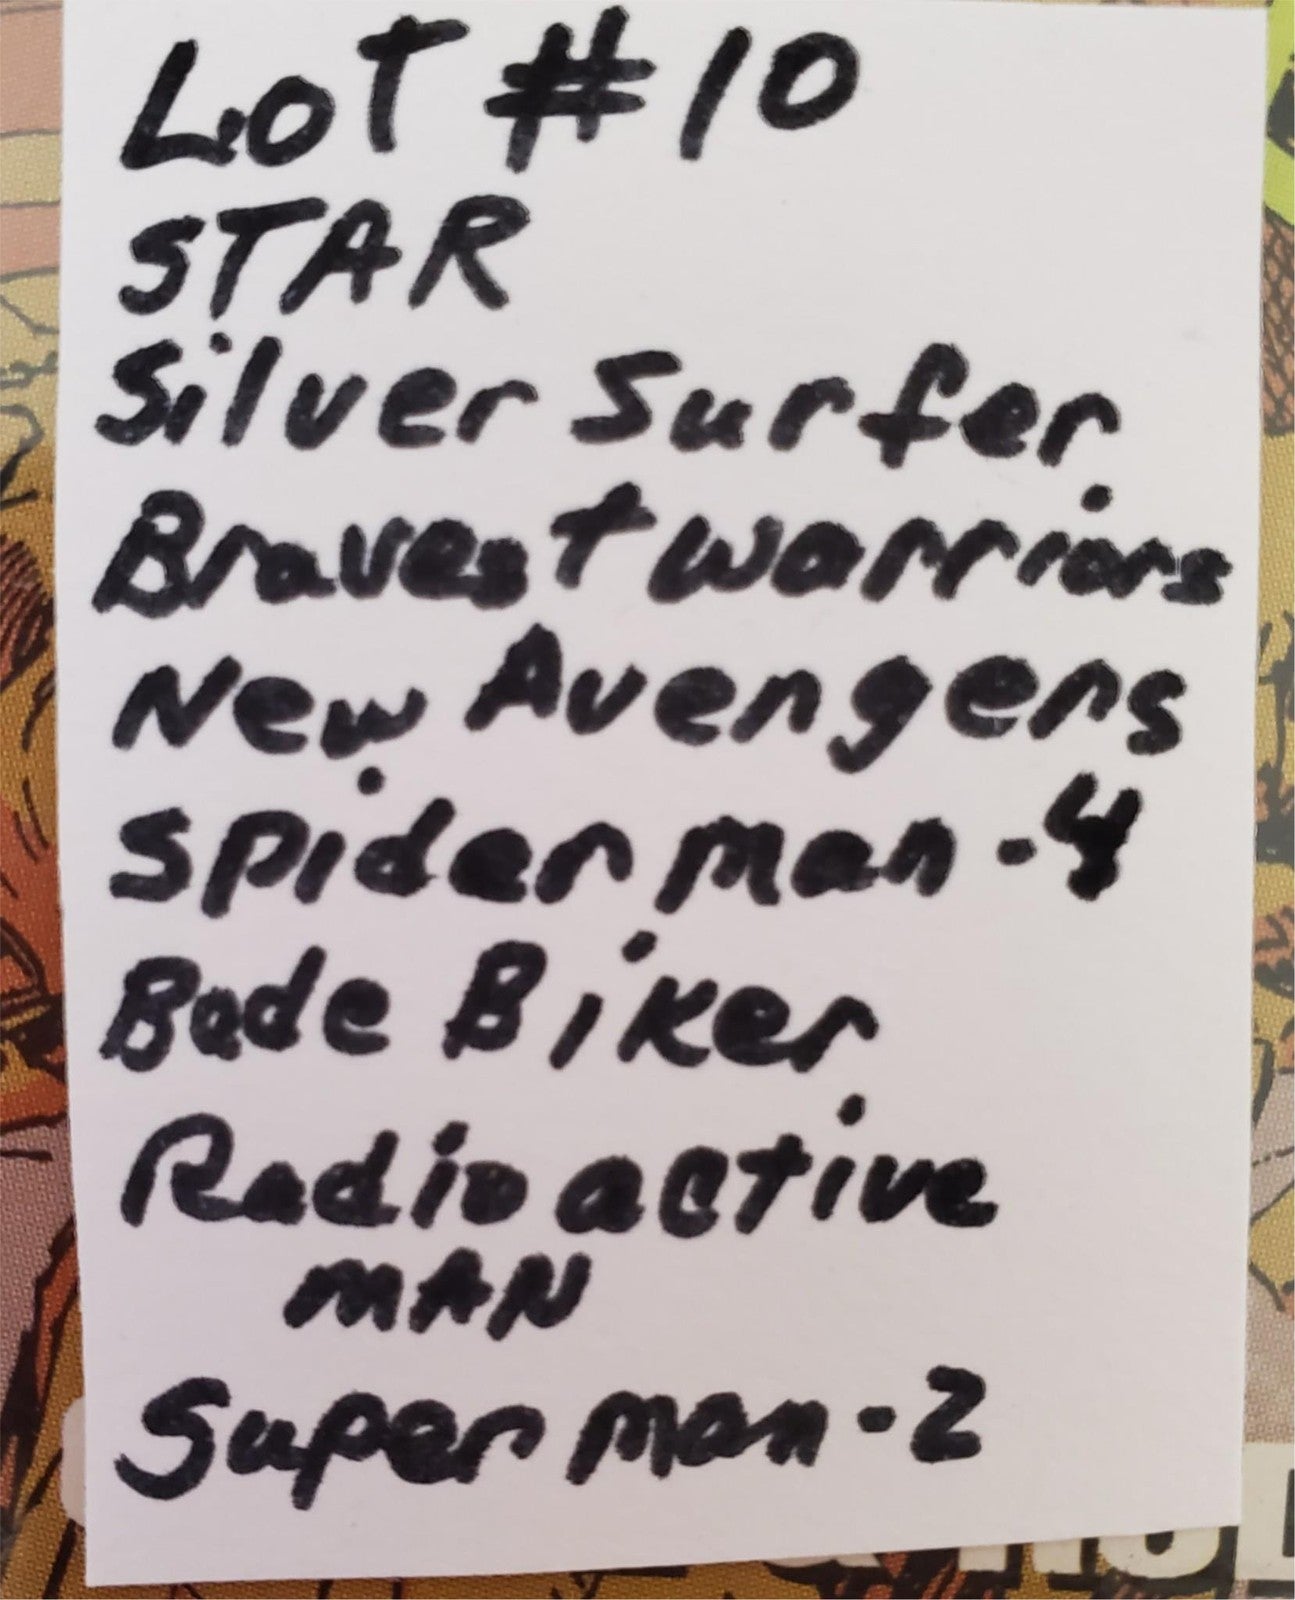 LOT #10
STAR
Silver Surfer
Bravest warriors
New Avengers
spider man -4
Bade Biker
Radio active
MAN
Super man -2